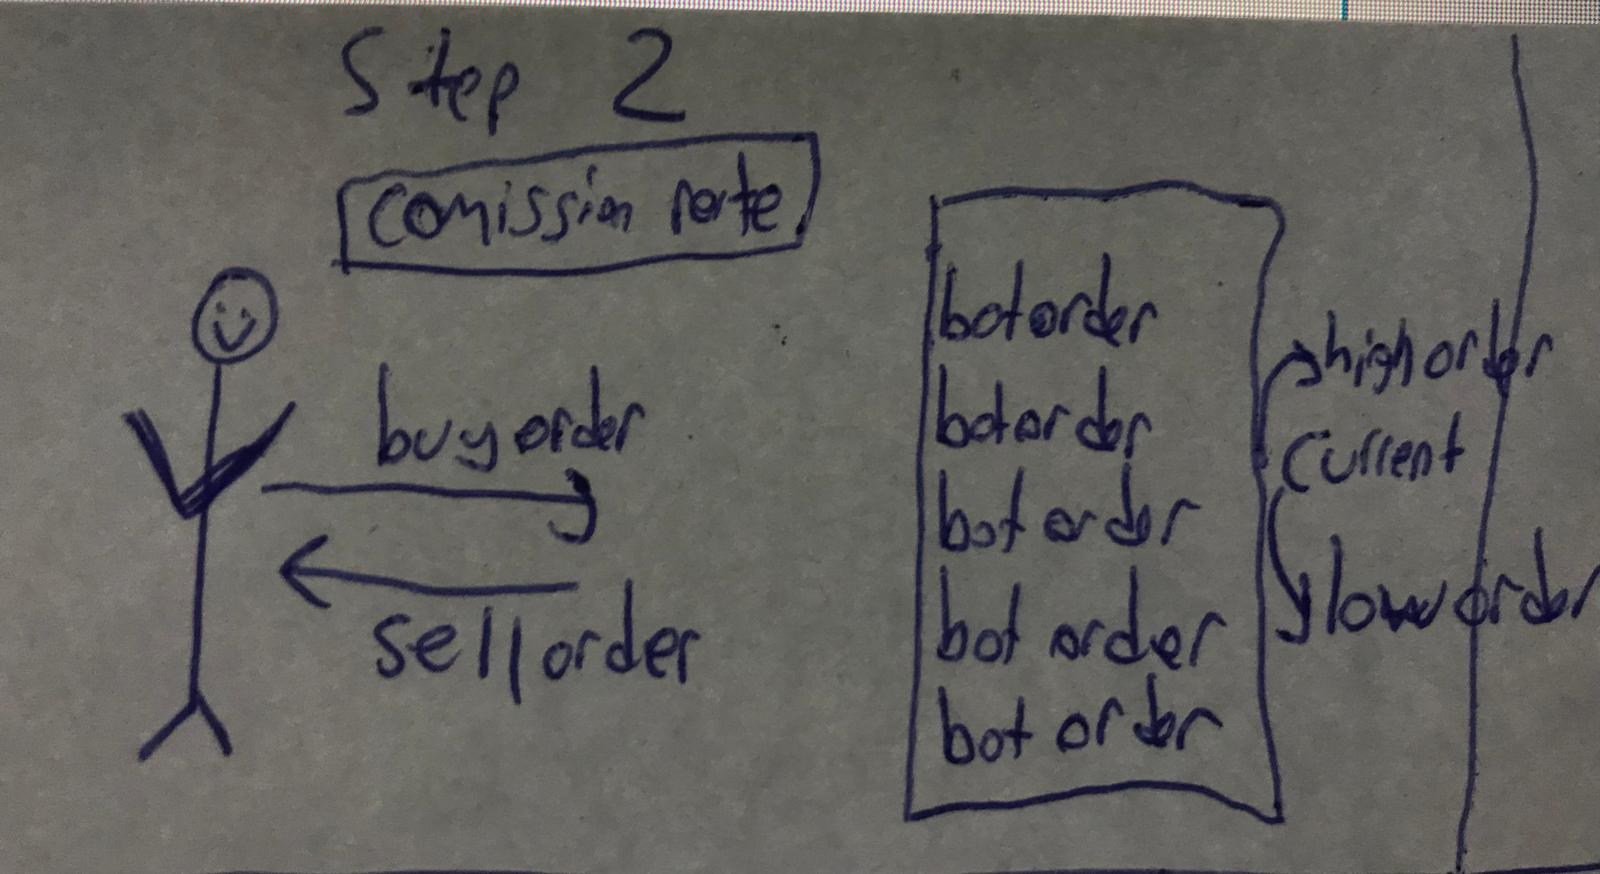 Step 2
comission rate
buy order
sell order
bot order
bot order
bot order
bot order
bot order
high order
current
low order